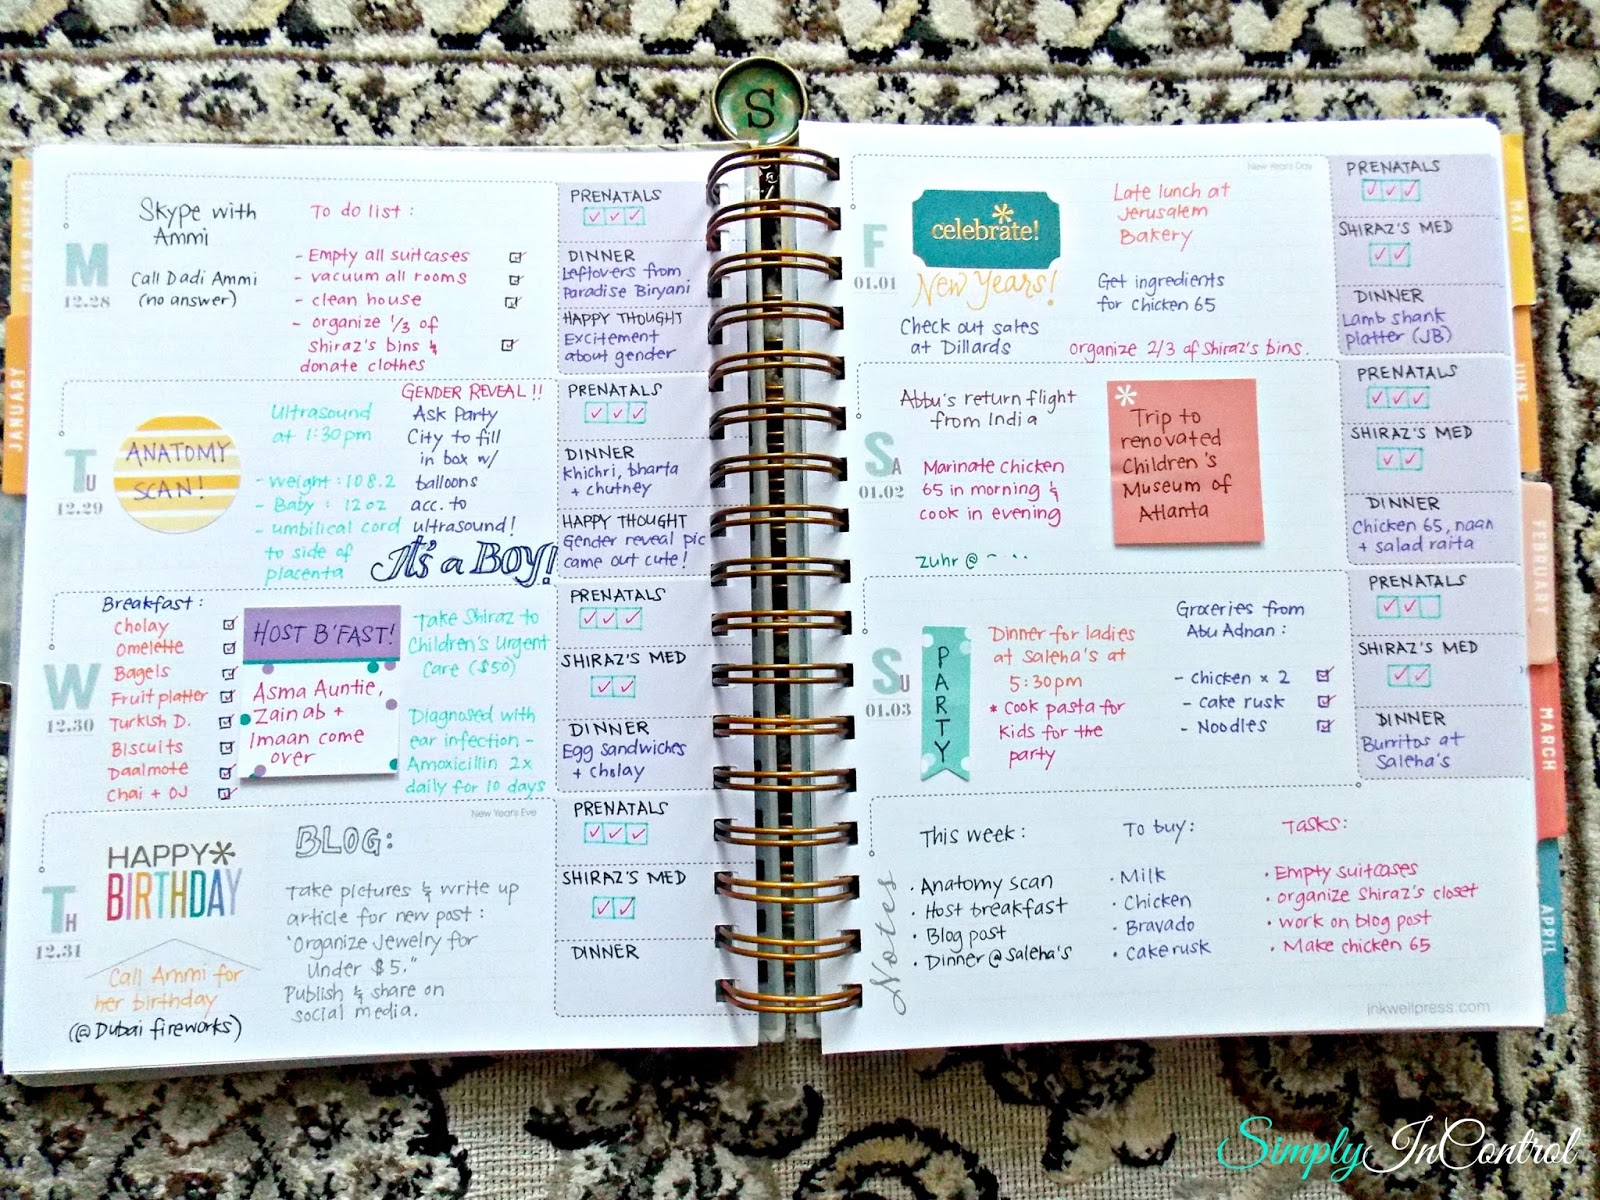 S
PLAN AHEAD
JANUARY
M
12.28
Skype with
Ammi
Call Dadi Ammi
(no answer)
To do list :
- Empty all suitcases
- vacuum all rooms
- clean house
- organize 1/3 of
Shiraz's bins &
donate clothes
PRENATALS
DINNER
Leftovers from
Paradise Biryani
HAPPY THOUGHT
Excitement
about gender
TU
12.29
ANATOMY
SCAN!
Ultrasound
at 1:30pm
- weight : 108.2
- Baby : 12 oz
- umbilical cord
to side of
placenta
GENDER REVEAL !!
Ask Party
City to fill
in box w/
balloons
acc. to
ultrasound!
It's a Boy!
PRENATALS
DINNER
Khichri, bharta
+ chutney
HAPPY THOUGHT
Gender reveal pic
came out cute!
W
12.30
Breakfast :
Cholay
Omelette
Bagels
Fruit platter
Turkish D.
Biscuits
Daalmote
Chai + OJ
HOST B'FAST!
Asma Auntie,
Zainab +
Imaan come
over
Take Shiraz to
Children's Urgent
Care ($50)
Diagnosed with
ear infection -
Amoxicillin 2x
daily for 10 days
PRENATALS
SHIRAZ'S MED
DINNER
Egg sandwiches
+ cholay
TH
12.31
New Year's Eve
HAPPY
BIRTHDAY
Call Ammi for
her birthday
(@ Dubai fireworks)
BLOG:
Take pictures & write up
article for new post :
"Organize Jewelry for
Under $5."
Publish & share on
social media.
PRENATALS
SHIRAZ'S MED
DINNER
New Year's Day
F
01.01
celebrate!
New Years!
Check out sales
at Dillards
Late lunch at
Jerusalem
Bakery
Get ingredients
for Chicken 65
organize 2/3 of Shiraz's bins.
PRENATALS
SHIRAZ'S MED
DINNER
Lamb shank
platter (JB)
SA
01.02
Abbu's return flight
from India
Marinate chicken
65 in morning &
cook in evening
Zuhr @
Trip to
renovated
Children's
Museum of
Atlanta
PRENATALS
SHIRAZ'S MED
DINNER
Chicken 65, naan
+ salad raita
SU
01.03
PARTY
Dinner for ladies
at Saleha's at
5:30pm
* Cook pasta for
Kids for the
party
Groceries from
Abu Adnan :
- chicken x 2
- cake rusk
- Noodles
PRENATALS
SHIRAZ'S MED
DINNER
Burritos at
Saleha's
Notes
This week :
· Anatomy scan
· Host breakfast
· Blog post
· Dinner @ Saleha's
To buy:
· Milk
· Chicken
· Bravado
· Cake rusk
Tasks:
· Empty suitcases
· organize Shiraz's closet
· work on blog post
· Make chicken 65
inkwellpress.com
MAY
JUNE
FEBRUARY
MARCH
APRIL
SimplyInControl